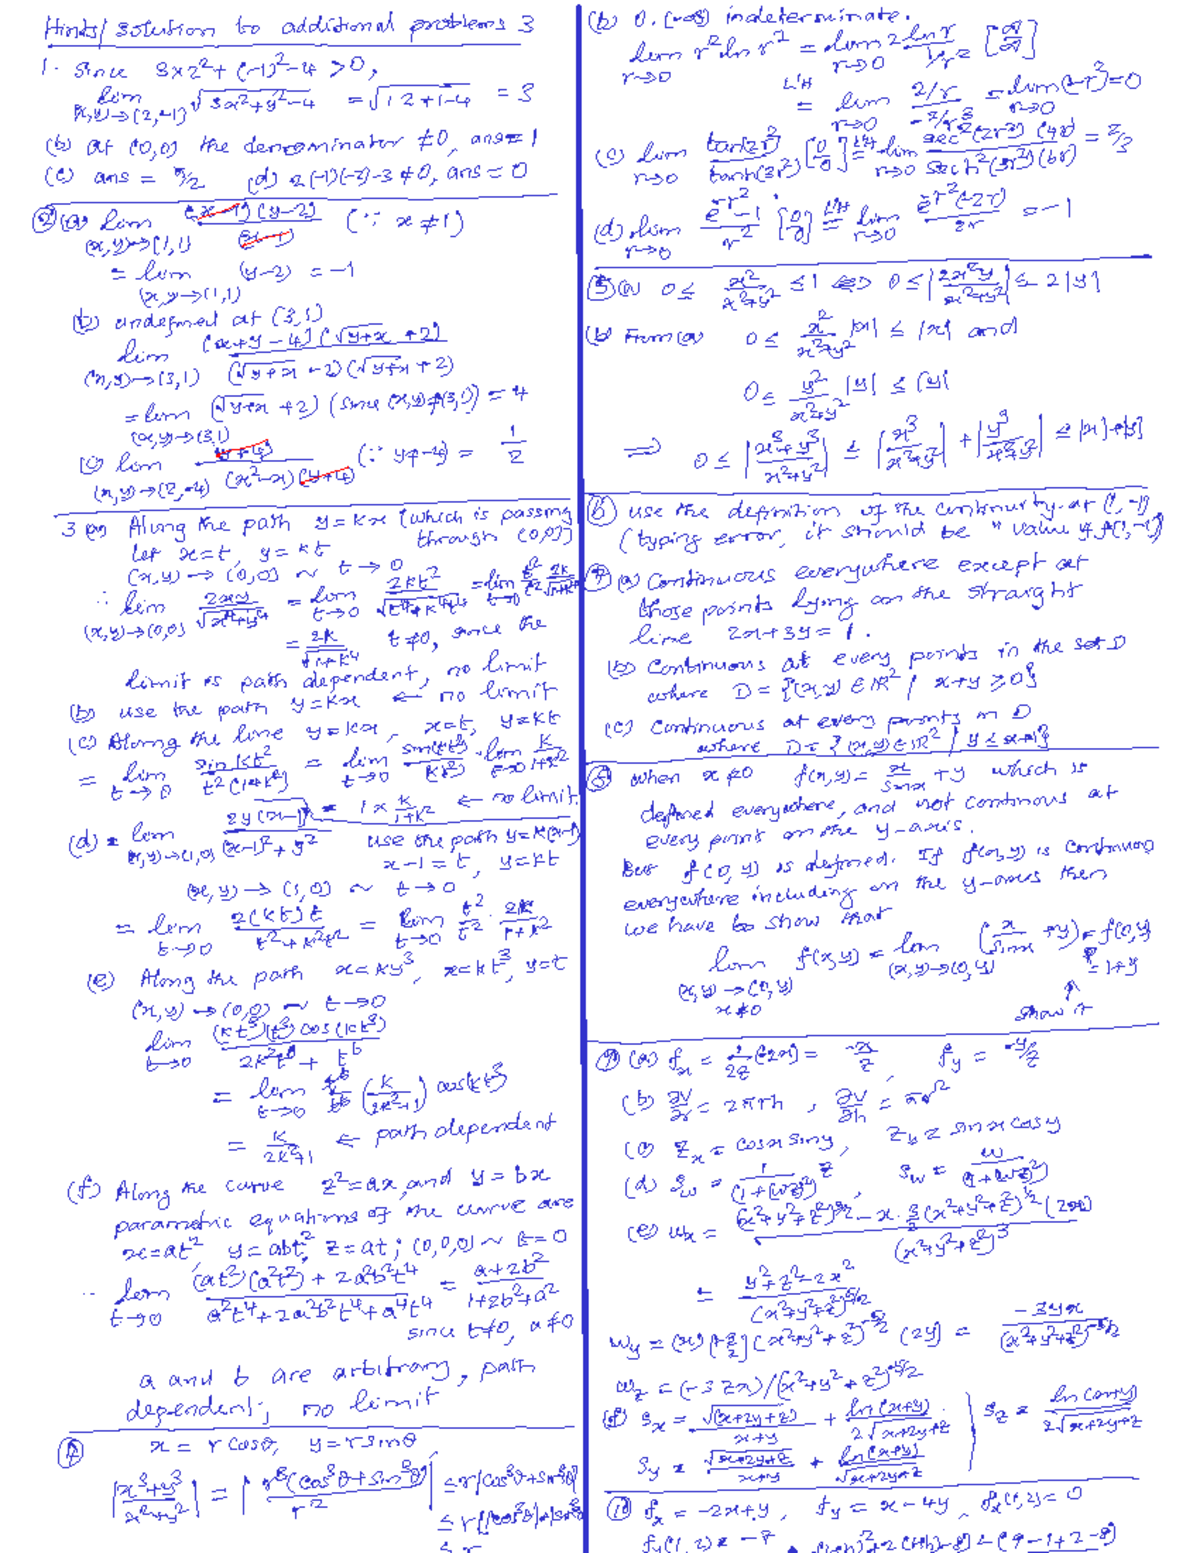 Hints/Solution to additional problems 3
1. Since 3x2²+(-1)²-4 >0,
lim (x,y)→(2,-1) √3x²+y²-4 = √12+1-4 = 3
(b) at (0,0) the denominator ≠0, ans=1
(c) ans = π/2 (d) 2(-1)(-2)-3≠0, ans=0
② (a) lim (x,y)→(1,1) (x-1)(y-2)/(x-1) (∵ x≠1)
= lim (x,y)→(1,1) (y-2) = -1
(b) undefined at (3,1)
lim (x,y)→(3,1) (x+y-4)(√y+x +2)/(√y+x -2)(√y+x +2)
= lim (x,y)→(3,1) (√y+x +2) (since (x,y)≠(3,1)) = 4
(c) lim (x,y)→(2,-4) (y+4)/(x²-x)(y+4) (∵ y≠-4) = 1/2
3 (a) Along the path y=kx (which is passing
let x=t, y=kt through (0,0))
(x,y)→(0,0) ~ t→0
∴ lim (x,y)→(0,0) 2xy/√x⁴+y⁴ = lim t→0 2kt²/√t⁴+k⁴t⁴ = lim t→0 t²/t² 2k/√1+k⁴
= 2k/√1+k⁴ t≠0, since the
limit is path dependent, no limit
(b) use the path y=kx ← no limit
(c) Along the line y=kx, x=t, y=kt
= lim t→0 sin kt²/t²(1+k²) = lim t→0 sin(kt²)/(kt²) · lim t→0 k/1+k²
= 1 x k/1+k² ← no limit.
(d) = lim (x,y)→(1,0) 2y(x-1)/(x-1)²+y² use the path y=k(x-1)
x-1=t, y=kt
(x,y)→(1,0) ~ t→0
= lim t→0 2(kt)t/t²+k²t² = lim t→0 t²/t² · 2k/1+k²
(e) Along the path x=ky³, x=kt³, y=t
(x,y)→(0,0) ~ t→0
lim t→0 (kt³)(t³)cos(kt³)/2k²t⁶+t⁶
= lim t→0 t⁶/t⁶ (k/2k²+1) cos(kt³)
= k/2k²+1 ← path dependent
(f) Along the curve z²=ax, and y=bx
parametric equations of the curve are
x=at², y=abt², z=at; (0,0,0) ~ t=0
∴ lim t→0 (at²)(a²t²)+2a²b²t⁴/a²t⁴+2a²b²t⁴+a⁴t⁴ = a+2b²/1+2b²+a²
since t≠0, a≠0
a and b are arbitrary, path
dependent, no limit
④ x=r cosθ, y=r sinθ
|x³+y³/x²+y²| = |r³(cos³θ+sin³θ)/r²| ≤r|cos³θ+sin³θ|
≤r(|cos³θ|+|sin³θ|
≤r
(b) 0.(-∞) indeterminate.
lim r→0 r² ln r² = lim r→0 2 ln r/1/r² [∞/∞]
L'H = lim r→0 2/r/-2/r³ = lim r→0 (-r²)=0
(c) lim r→0 tan(2r²)/tanh(3r²) [0/0] L'H = lim r→0 sec²(2r²)(4r)/sech²(3r²)(6r) = 2/3
(d) lim r→0 e^-r²-1/r² [0/0] L'H = lim r→0 e^-r²(-2r)/2r = -1
⑤ (a) 0≤ x²/x²+y² ≤1 ⇔ 0≤|2x²y/x²+y²|≤2|y|
(b) From (a) 0≤ x²/x²+y² |x| ≤|x| and
0≤ y²/x²+y² |y| ≤|y|
⟹ 0≤|x³+y³/x²+y²| ≤ |x³/x²+y²|+|y³/x²+y²| ≤|x|+|y|
⑥ use the definition of the continuity at (1,-1)
(typing error, it should be "value of f(1,-1)
⑦ (a) Continuous everywhere except at
those points lying on the straight
line 2x+3y=1.
(b) Continuous at every points in the set D
where D={(x,y)∈IR² | x+y≥0}
(c) Continuous at every points in D
where D={(x,y)∈IR² | y≤x+1}
⑧ when x≠0 f(x,y)= x/sinx +y which is
defined everywhere, and not continous at
every point on the y-axis.
But f(0,y) is defined. If f(x,y) is continuous
everywhere including on the y-axis then
we have to show that
lim (x,y)→(0,y) x≠0 f(x,y) = lim (x,y)→(0,y) (x/sinx +y) = f(0,y)
=1+y
↑
show it
⑨ (a) fx = 1/2z(-2x) = -x/z, fy = -y/z
(b) ∂V/∂r = 2πrh, ∂V/∂h = πr²
(c) Zx = cosx siny, Zy = sinx cosy
(e) ux = (x²+y²+z²)^3/2 - x·3/2(x²+y²+z²)^1/2(2x)/(x²+y²+z²)³
= y²+z²-2x²/(x²+y²+z²)^5/2
uy = (x)(-3/2)(x²+y²+z²)^-5/2 (2y) = -3yx/(x²+y²+z²)^5/2
uz = (-3zx)/(x²+y²+z²)^5/2
(f) Sx = √(x+2y+z)/x+y + ln(x+y)/2√x+2y+z
Sy = √x+2y+z/x+y + ln(x+y)/√x+2y+z
Sz = ln(x+y)/2√x+2y+z
⑩ fx = -2x+y, fy = x-4y, fx(1,2)=0
fy(1,2) = -7